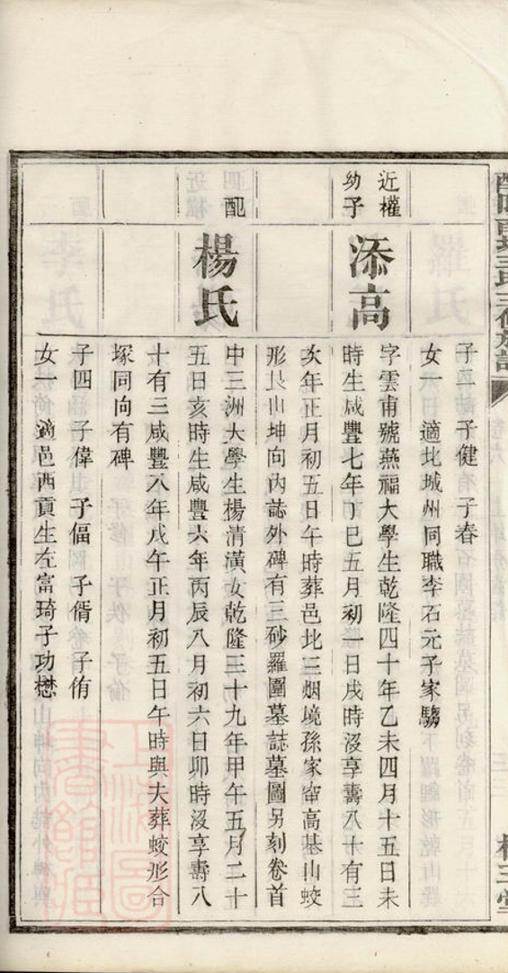 子二 子健 子春
女一 適北城州同職李石元子家驄
近權幼子
添高
字雲甫號燕福大學生乾隆四十年乙未四月十五日未
時生咸豐七年丁巳五月初一日戌時沒享壽八十有三
次年正月初五日午時葬邑北三烟境孫家窰高基山蛟
形艮山坤向內誌外碑有三砂羅圍墓誌墓圖另刻卷首
配
楊氏
中三洲大學生楊清潢女乾隆三十九年甲午五月二十
五日亥時生咸豐六年丙辰八月初六日卯時沒享壽八
十有三咸豐八年戊午正月初五日午時與夫葬蛟形合
塚同向有碑
子四 子偉 子偪 子偦 子侑
女一 適邑西貢生左富琦子功懋